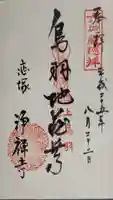 奉拝
平成二十五年
八月二十二日
鳥羽地蔵尊
恋塚
浄禅寺